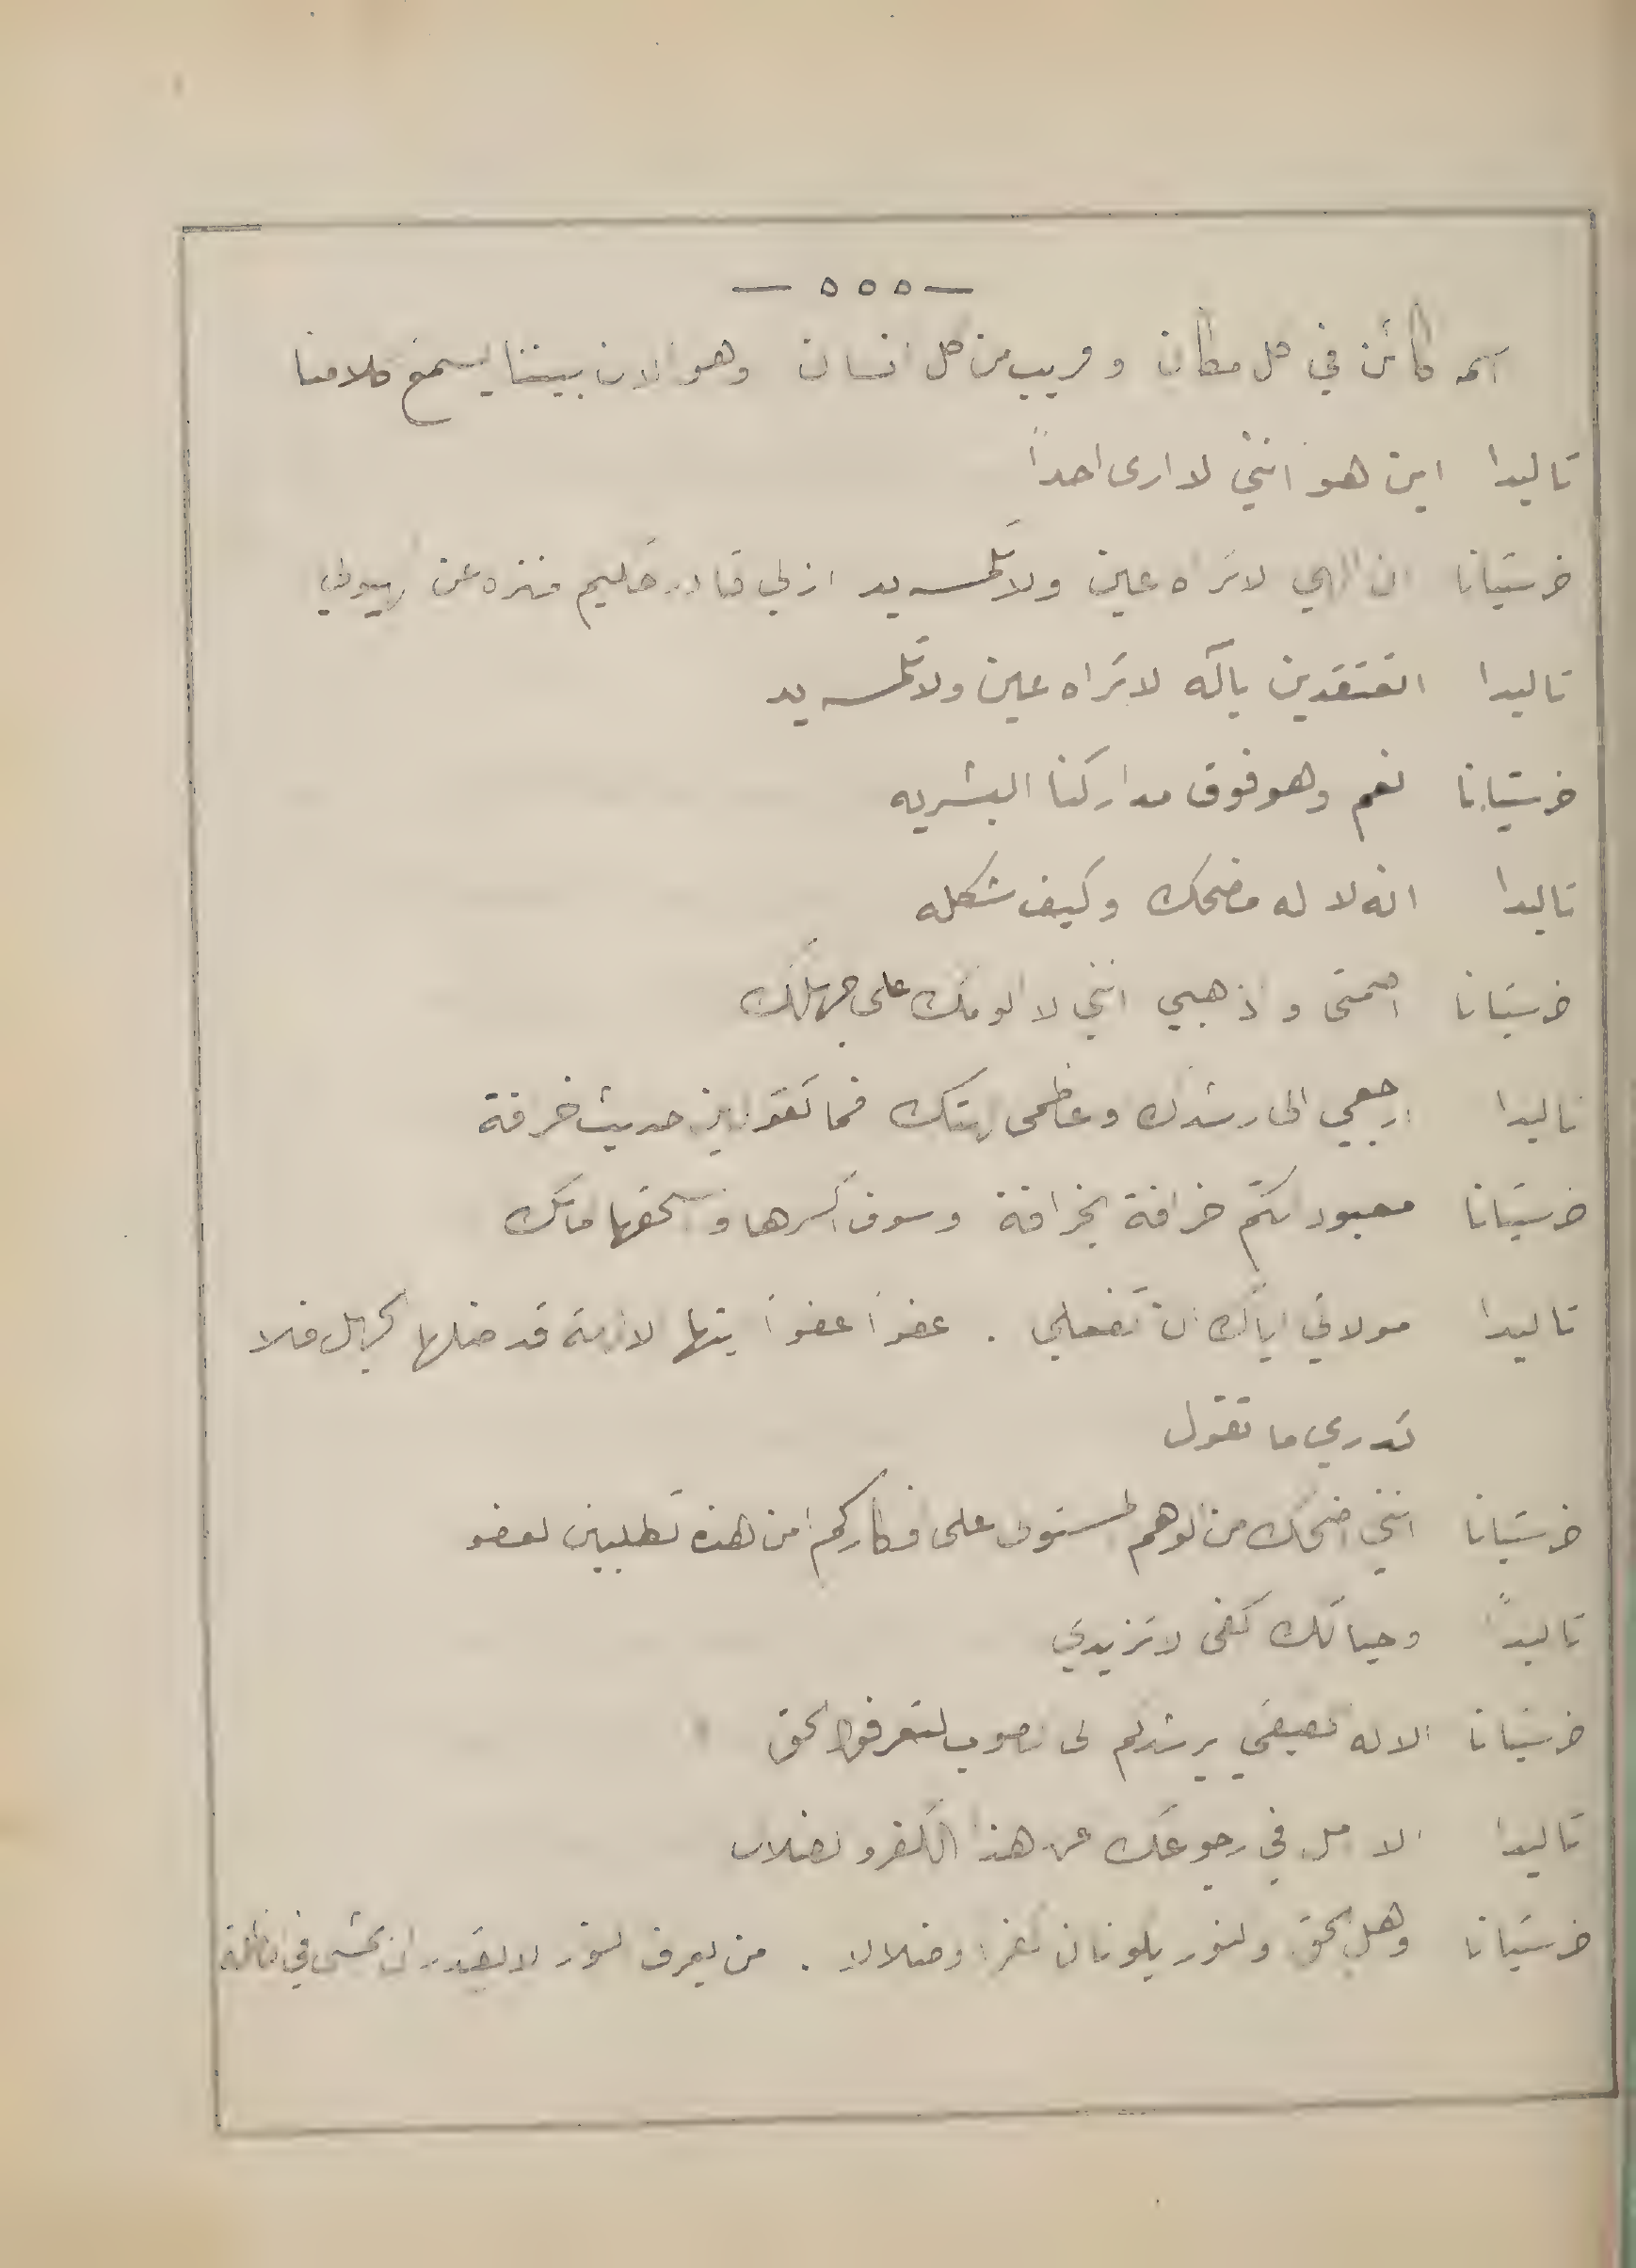 — ٥٥٥ —
آله كائن في كل مكان وقريب من كل انسان وهو الان بيننا يسمع كلامنا
تاليدا اين هو انني لا ارى احداً
خرستيانا ان الهي لا تراه عين ولا تلمسه يد ازلي قادر حكيم منزه عن الهيولي
تاليدا اتعتقدين بآله لا تراه عين ولا تلمسه يد
خرستيانا نعم وهو فوق مداركنا البشريه
تاليدا انه لا له مضحك وكيف شكله
خرستيانا اصمتي واذهبي انني لا الومك على جهلك
تاليدا ارجعي الى رشدك وعظمي الهتك فما تقولين حديث خرافة
خرستيانا معبوداتكم خرافة بخرافة وسوف اكسرها واسحقها امامك
تاليدا مولاتي اياك ان تفعلي . عفواً عفواً ايتها الالهة قد ضللها الجهل فلا
تدري ما تقول
خرستيانا انني اضحك من الوهم المستولي على افكاركم امن هذه تطلبين العفو
تاليدا وحياتك كفى لا تزيدي
خرستيانا الاله الحقيقي يرشدكم الى الصواب لتعرفوا الحق
تاليدا الا امل في رجوعك عن هذا الكفر والضلال
خرستيانا وهل الحق والنور يكونان كفرا وضلالا . من يعرف النور لا يقدر ان يمشي في الظلمة